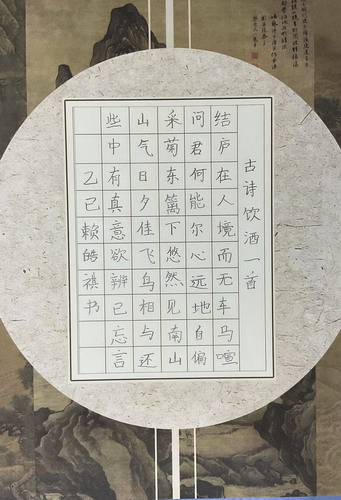 古诗饮酒一首
结庐在人境而无车马喧
问君何能尔心远地自偏
采菊东篱下悠然见南山
山气日夕佳飞鸟相与还
些中有真意欲辨已忘言
乙巳赖皓祺书